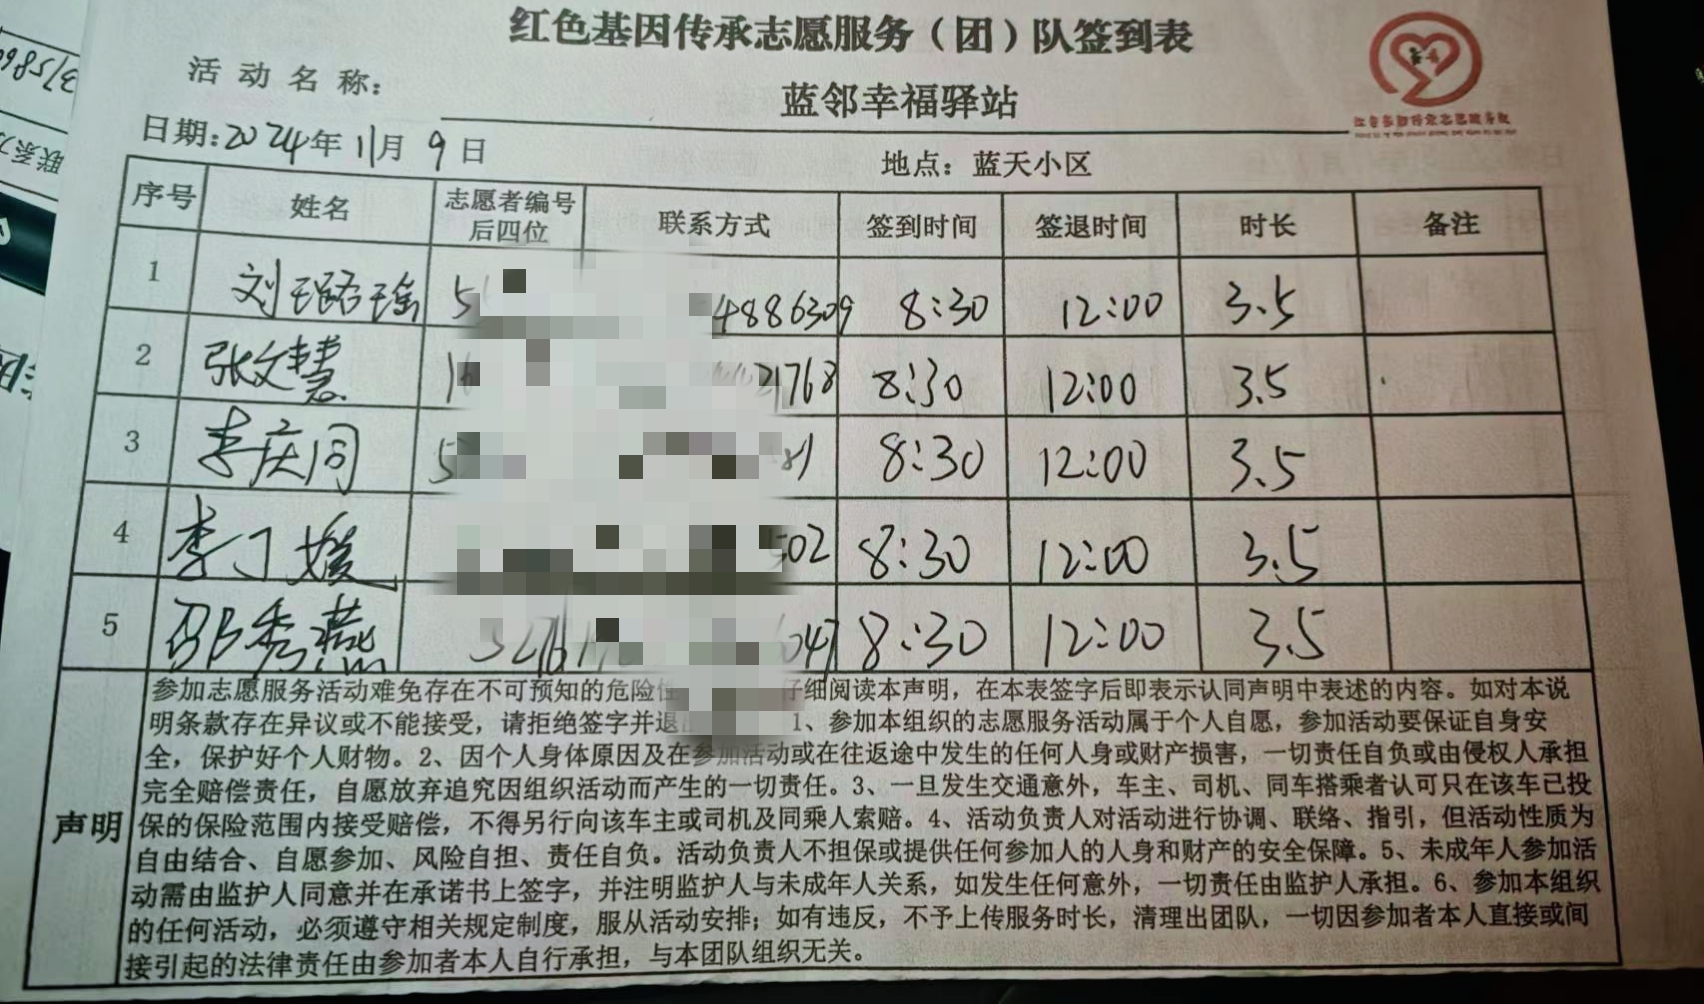 红色基因传承志愿服务（团）队签到表
活动名称：
蓝邻幸福驿站
日期：2024年11月9日
地点：蓝天小区
序号 姓名 志愿者编号后四位 联系方式 签到时间 签退时间 时长 备注
1 刘璐瑶 5 4886309 8:30 12:00 3.5
2 张文慧 16 21768 8:30 12:00 3.5
3 李庆同 5 81 8:30 12:00 3.5
4 李丁媛 502 8:30 12:00 3.5
5 邵秀燕 5276 6047 8:30 12:00 3.5
声明
参加志愿服务活动难免存在不可预知的危险性 仔细阅读本声明，在本表签字后即表示认同声明中表述的内容。如对本说
明条款存在异议或不能接受，请拒绝签字并退出 1、参加本组织的志愿服务活动属于个人自愿，参加活动要保证自身安
全，保护好个人财物。2、因个人身体原因及在参加活动或在往返途中发生的任何人身或财产损害，一切责任自负或由侵权人承担
完全赔偿责任，自愿放弃追究因组织活动而产生的一切责任。3、一旦发生交通意外，车主、司机、同车搭乘者认可只在该车已投
保的保险范围内接受赔偿，不得另行向该车主或司机及同乘人索赔。4、活动负责人对活动进行协调、联络、指引，但活动性质为
自由结合、自愿参加、风险自担、责任自负。活动负责人不担保或提供任何参加人的人身和财产的安全保障。5、未成年人参加活
动需由监护人同意并在承诺书上签字，并注明监护人与未成年人关系，如发生任何意外，一切责任由监护人承担。6、参加本组织
的任何活动，必须遵守相关规定制度，服从活动安排；如有违反，不予上传服务时长，清理出团队，一切因参加者本人直接或间
接引起的法律责任由参加者本人自行承担，与本团队组织无关。